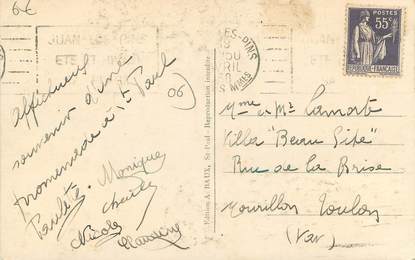 6€
JUAN-LES-PINS
ÉTÉ
LES-PINS
AVRIL
POSTES
55c
RÉPUBLIQUE FRANÇAISE
Affectueux
souvenir d'une
promenade à St Paul
06
Paulette. Monique
Charles
Nicole
Edition A. BAUX, St-Paul Reproduction interdite
Mme et Mr Lamort
Villa "Beau Site"
Rue de la Brise
Mourillon Toulon
(Var)